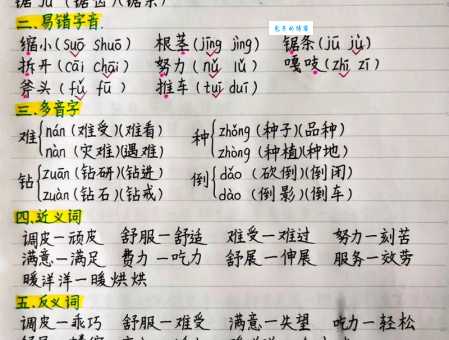 二.易错字音.
缩小(suō shuō) 根茎(jīng jìng) 锯条(jū jù)
拆开(cāi chāi) 努力(nǔ lǔ) 嘎吱(zhī zī)
斧头(fǔ fū) 推车(tuī duī)
三.多音字
难{nán(难受)(难看) 种{zhǒng(种子)(品种)
nàn(灾难)(遇难) zhòng(种植)(种地)
钻{zuān(钻研)(钻进) 倒{dǎo(砍倒)(倒闭)
zuàn(钻石)(钻戒) dào(倒影)(倒车)
四.近义词
调皮—顽皮 舒服—舒适 难受—难过 努力—刻苦
满意—满足 费力—吃力 舒展—伸展 服务—效劳
暖洋洋—暖烘烘
五.反义词
调皮—乖巧 舒服—难受 满意—失望 吃力—轻松